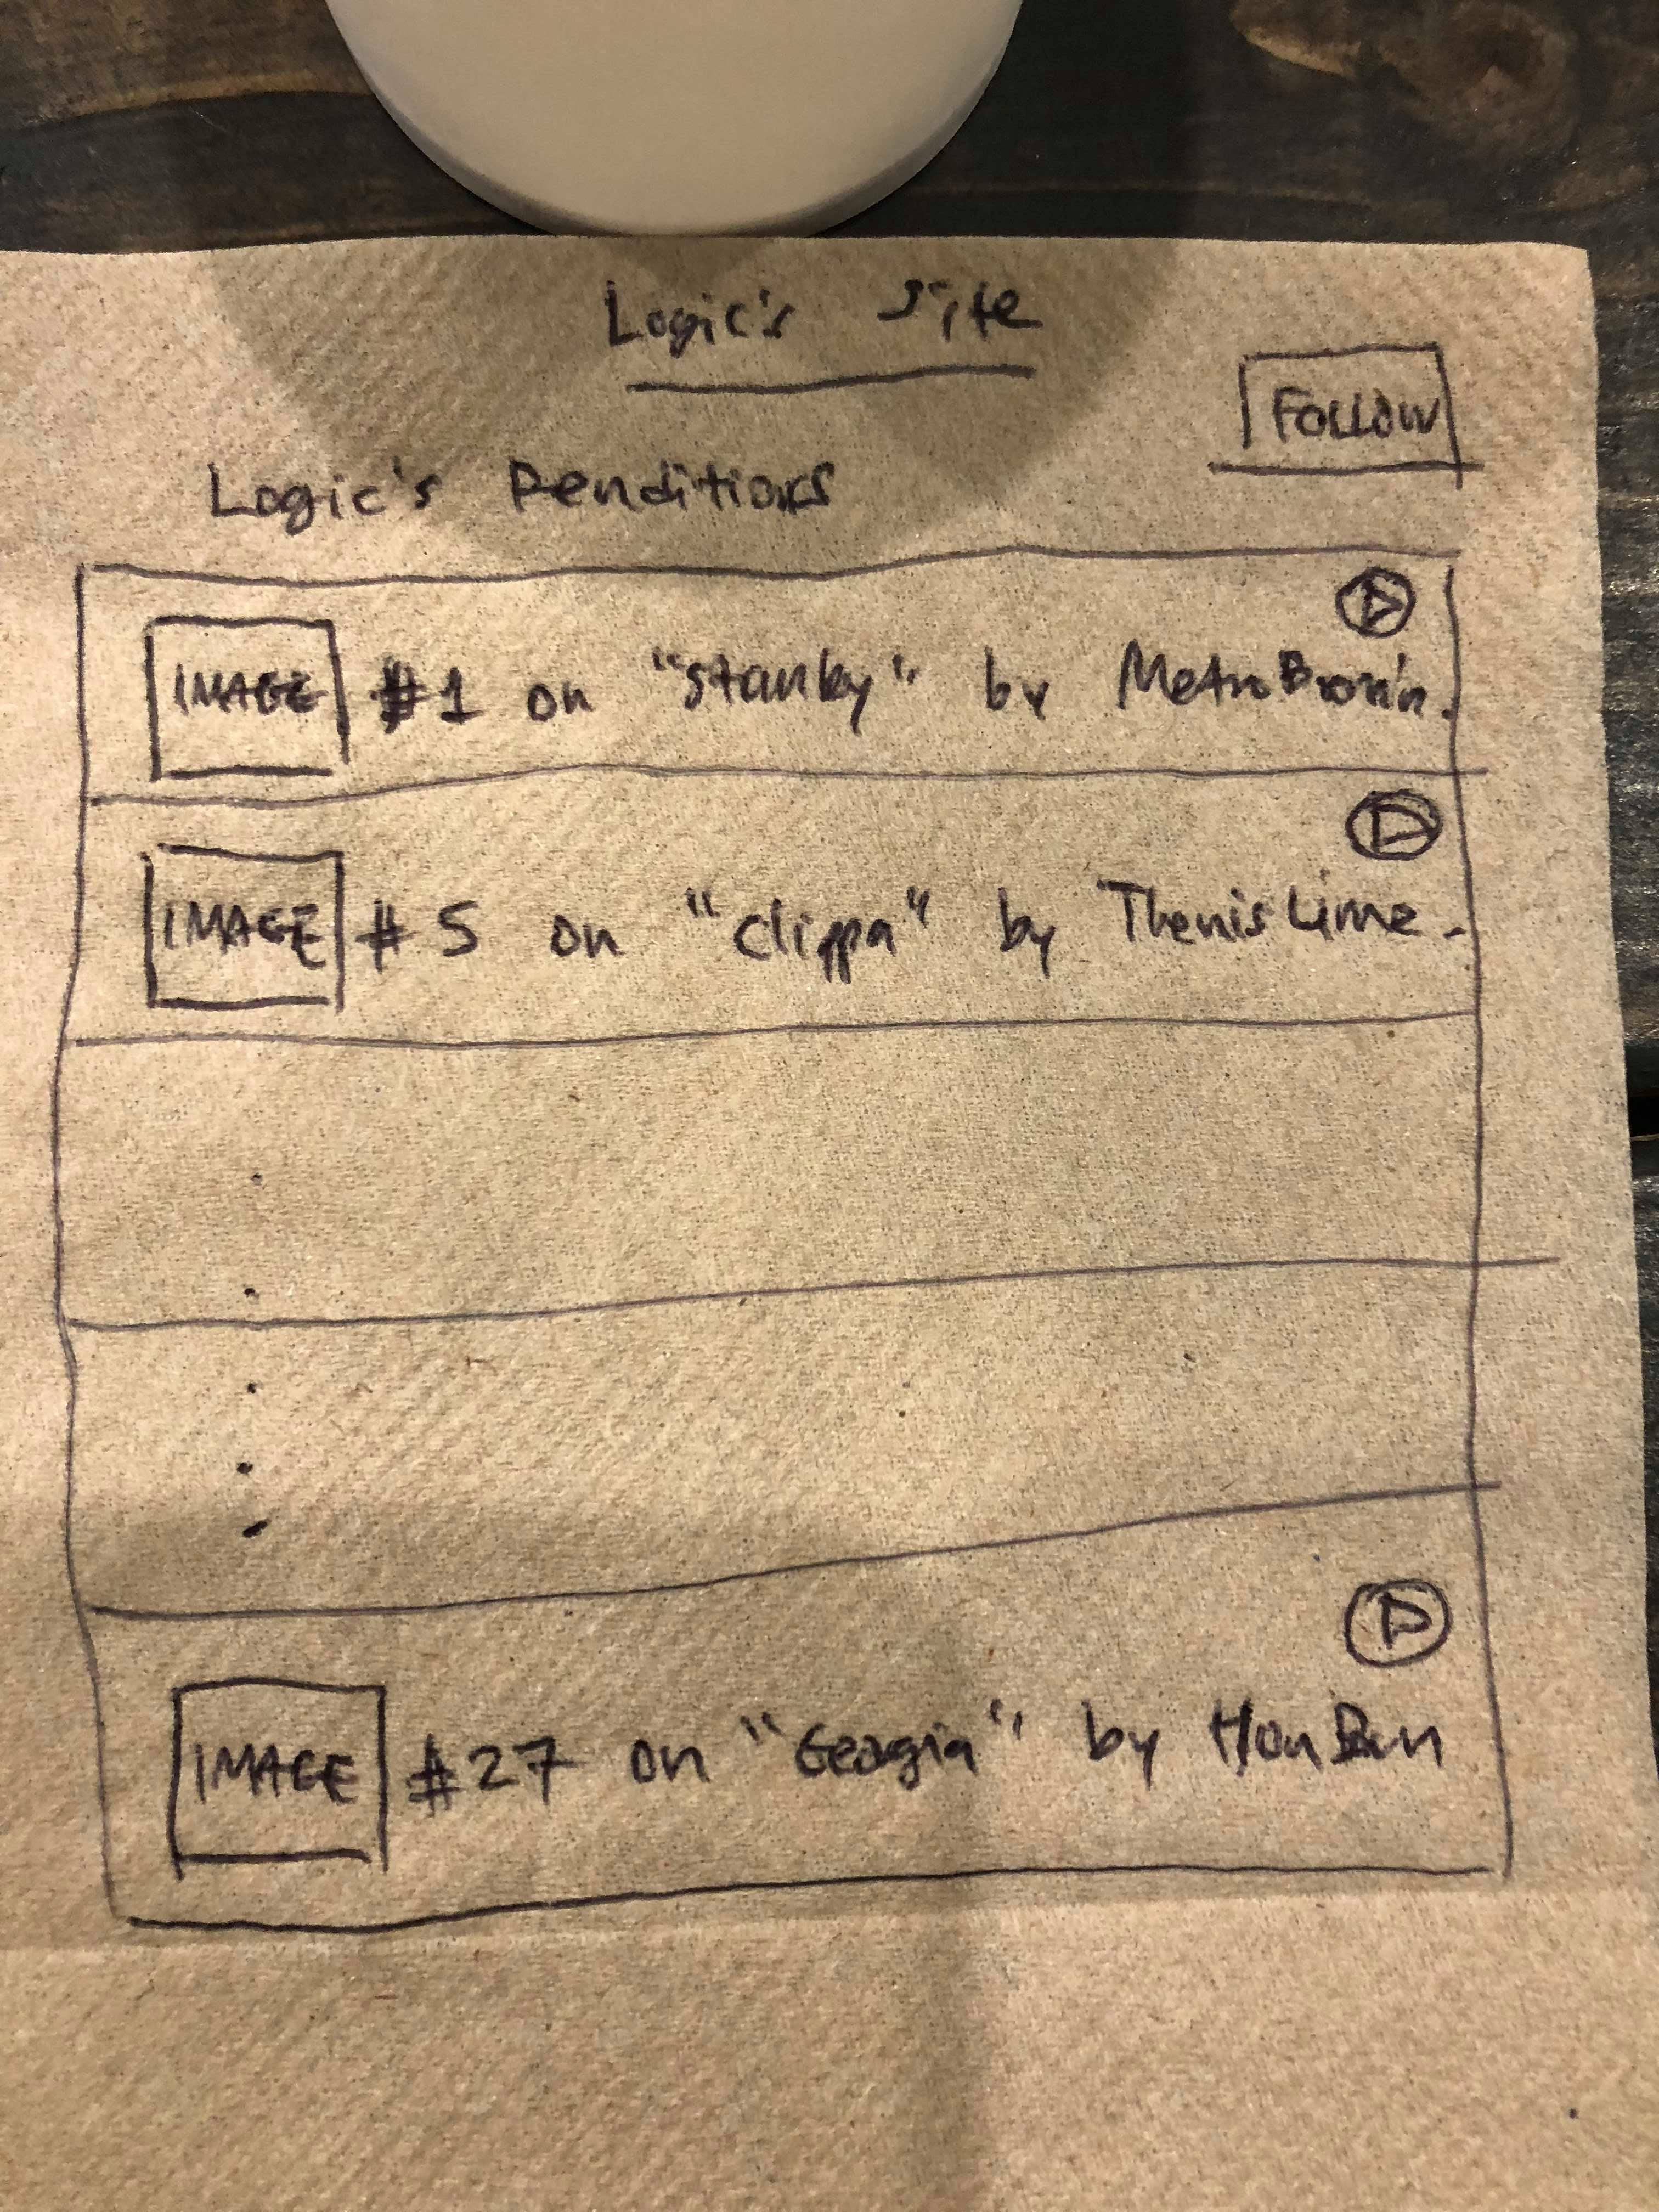 Logic's Site
FOLLOW
Logic's Renditions
IMAGE #1 on "Stanky" by Metro Boomin.
IMAGE #5 on "Clippa" by Thenis Lime.
IMAGE #27 on "Geogia" by